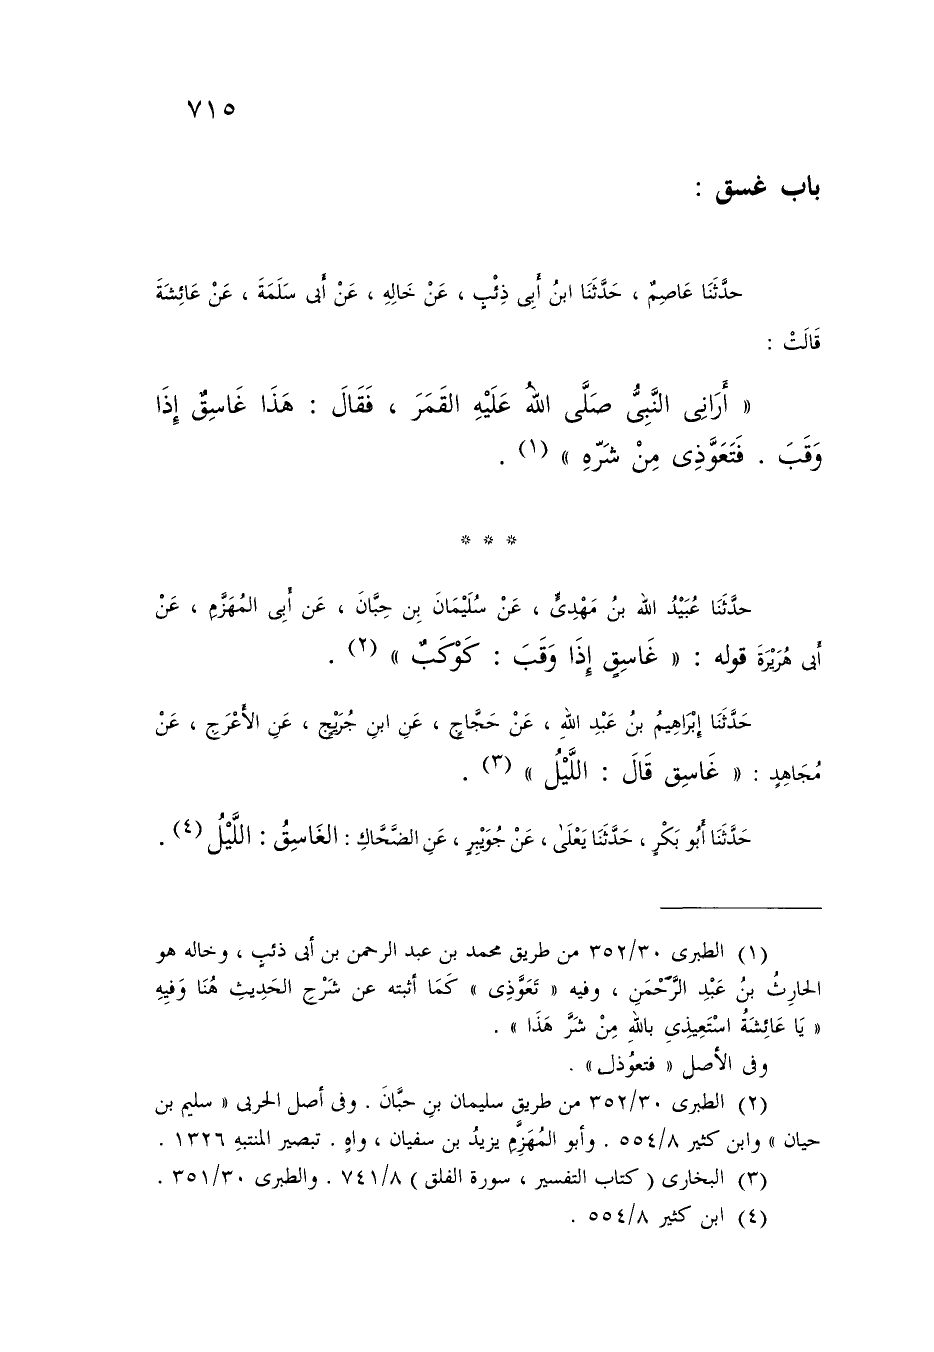 ٧١٥
باب غسق :
حدَّثَنَا عَاصِمٌ ، حَدَّثَنَا ابنُ أَبِى ذِئْبٍ ، عَنْ خَالِهِ ، عَنْ أَبى سَلَمَةَ ، عَنْ عَائِشَةَ
قَالَتْ :
« أَرَانِى النَّبِىُّ صَلَّى اللهُ عَلَيْهِ القَمَرَ ، فَقَالَ : هَذَا غَاسِقٌ إِذَا
وَقَبَ . فَتَعَوَّذِى مِنْ شَرّهِ » (١) .
* * *
حدَّثَنَا عُبَيْدُ الله بنُ مَهْدِىٍّ ، عَنْ سُلَيْمَانَ بِن حِبَّانَ ، عَن أَبِى المُهَزَّمِ ، عَنْ
أَبى هُرَيْرَةَ قوله : « غَاسِقٍ إِذَا وَقَبَ : كَوْكَبٌ » (٢) .
حَدَّثَنَا إِبْرَاهِيمُ بنُ عَبْدِ اللهِ ، عَنْ حَجَّاجٍ ، عَنِ ابنِ جُرَيْجٍ ، عَنِ الأَعْرَجِ ، عَنْ
مُجَاهِدٍ : « غَاسِق قَالَ : اللَّيْلُ » (٣) .
حَدَّثَنَا أَبُو بَكْرٍ ، حَدَّثَنَا يَعْلَىٰ ، عَنْ جُوَيْبِرٍ ، عَنِ الضَّحَّاكِ : الغَاسِقُ : اللَّيْلُ (٤) .
(١) الطبرى ٣٥٢/٣٠ من طريق محمد بن عبد الرحمن بن أبى ذئبٍ ، وخاله هو
الحارِثُ بنُ عَبْدِ الرَّحْمَنِ ، وفيه « تَعَوَّذِى » كَمَا أثبته عن شَرْحِ الحَدِيثِ هُنَا وَفِيهِ
« يَا عَائِشَةُ اسْتَعِيذِى بِاللهِ مِنْ شَرَّ هَذَا » .
وفى الأصل « فتعوُذل » .
(٢) الطبرى ٣٥٢/٣٠ من طريق سليمان بنِ حبَّانَ . وفى أصل الحربى « سليم بن
حيان » وابن كثير ٥٥٤/٨ . وأبو المُهَزِّمِ يزيدُ بن سفيان ، واهٍ . تبصير المنتبه ١٣٢٦ .
(٣) البخارى ( كتاب التفسير ، سورة الفلق ) ٧٤١/٨ . والطبرى ٣٥١/٣٠ .
(٤) ابن كثير ٥٥٤/٨ .